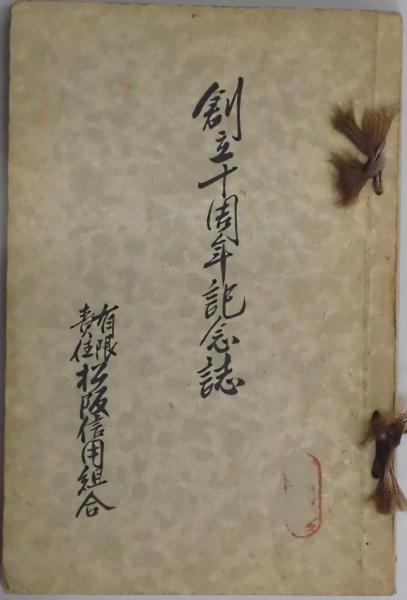 創立十周年記念誌
有限責任松阪信用組合